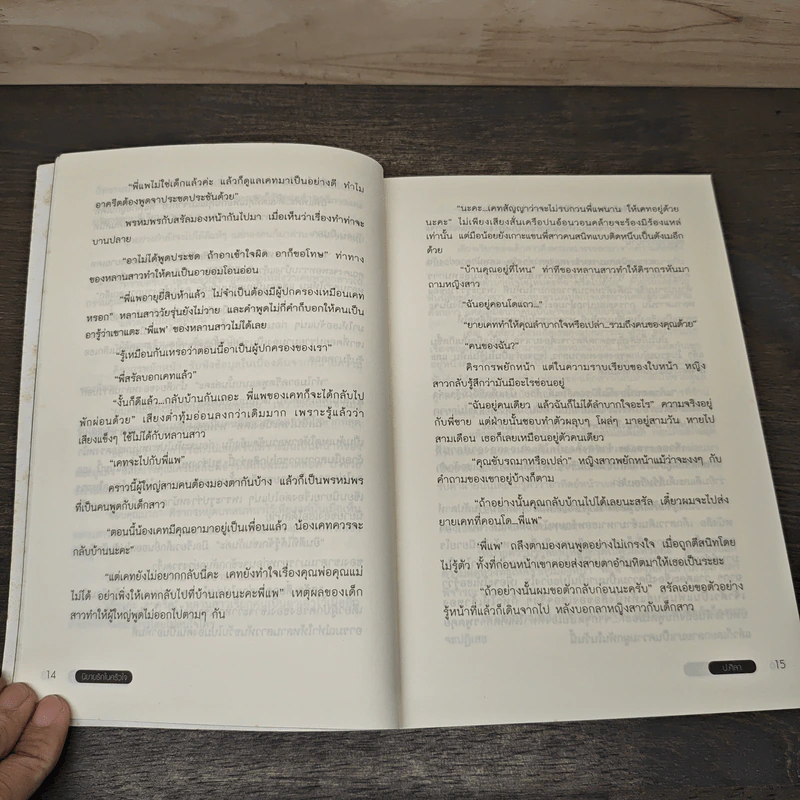 "พี่แพไม่ใช่เด็กแล้วค่ะ แล้วก็ดูแลเคทมาเป็นอย่างดี ทำไม
อาคริตต้องพูดจาประชดประชันด้วย"
พรหมพรกับสรัลมองหน้ากันไปมา เมื่อเห็นว่าเรื่องทำท่าจะ
บานปลาย
"อาไม่ได้พูดประชด ถ้าอาเข้าใจผิด อาก็ขอโทษ" ท่าทาง
ของหลานสาวทำให้คนเป็นอายอมโอนอ่อน
"พี่แพอายุยี่สิบห้าแล้ว ไม่จำเป็นต้องมีผู้ปกครองเหมือนเคท
หรอก" หลานสาววัยรุ่นยังไม่วาย และคำพูดไม่กี่คำก็บอกให้คนเป็น
อารู้ว่าเขาแตะ 'พี่แพ' ของหลานสาวไม่ได้เลย
"รู้เหมือนกันเหรอว่าตอนนี้อาเป็นผู้ปกครองของเรา"
"พี่สรัลบอกเคทแล้ว"
"งั้นก็ดีแล้ว...กลับบ้านกันเถอะ พี่แพของเคทก็จะได้กลับไป
พักผ่อนด้วย" เสียงต่ำทุ้มอ่อนลงกว่าเดิมมาก เพราะรู้แล้วว่า
เสียงแข็งๆ ใช้ไม่ได้กับหลานสาว
"เคทจะไปกับพี่แพ"
คราวนี้ผู้ใหญ่สามคนต้องมองตากันบ้าง แล้วก็เป็นพรหมพร
ที่เป็นคนพูดกับเด็กสาว
"ตอนนี้น้องเคทมีคุณอามาอยู่เป็นเพื่อนแล้ว น้องเคทควรจะ
กลับบ้านนะคะ"
"แต่เคทยังไม่อยากกลับนี่คะ เคทยังทำใจเรื่องคุณพ่อคุณแม่
ไม่ได้ อย่าเพิ่งให้เคทกลับไปที่บ้านเลยนะคะพี่แพ" เหตุผลของเด็ก
สาวทำให้ผู้ใหญ่พูดไม่ออกไปตามๆ กัน
14 นิยายรักในครัวใจ
"นะคะ...เคทสัญญาว่าจะไม่รบกวนพี่แพนาน ให้เคทอยู่ด้วย
นะคะ" ไม่เพียงเสียงสั่นเครือปนอ้อนวอนคล้ายจะร้องมิร้องแหล่
เท่านั้น แต่มือน้อยยังเกาะแขนพี่สาวคนสนิทแบบติดหนึบเป็นตังเมอีก
ด้วย
"บ้านคุณอยู่ที่ไหน" ท่าทีของหลานสาวทำให้ติรากรหันมา
ถามหญิงสาว
"ฉันอยู่คอนโดแถว..."
"ยายเคททำให้คุณลำบากใจหรือเปล่า...รวมถึงคนของคุณด้วย"
"คนของฉัน?"
ติรากรพยักหน้า แต่ในความราบเรียบของใบหน้า หญิง
สาวกลับรู้สึกว่ามันมีอะไรซ่อนอยู่
"ฉันอยู่คนเดียว แล้วฉันก็ไม่ได้ลำบากใจอะไร" ความจริงอยู่
กับพี่ชาย แต่ฝ่ายนั้นชอบทำตัวผลุบๆ โผล่ๆ มาอยู่สามวัน หายไป
สามเดือน เธอก็เลยเหมือนอยู่ตัวคนเดียว
"คุณขับรถมาหรือเปล่า" หญิงสาวพยักหน้าแม้ว่าจะงงๆ กับ
คำถามของเขาอยู่บ้างก็ตาม
"ถ้าอย่างนั้นคุณกลับบ้านไปได้เลยนะสรัล เดี๋ยวผมจะไปส่ง
ยายเคทที่คอนโด...พี่แพ"
'พี่แพ' ถลึงตามองคนพูดอย่างไม่เกรงใจ เมื่อถูกตีสนิทโดย
ไม่รู้ตัว ทั้งที่ก่อนหน้าเขาคอยส่งสายตาอำมหิตมาให้เธอเป็นระยะ
"ถ้าอย่างนั้นผมขอตัวกลับก่อนนะครับ" สรัลเอ่ยขอตัวอย่าง
รู้หน้าที่แล้วก็เดินจากไป หลังบอกลาหญิงสาวกับเด็กสาว
ป.ศิลา 15